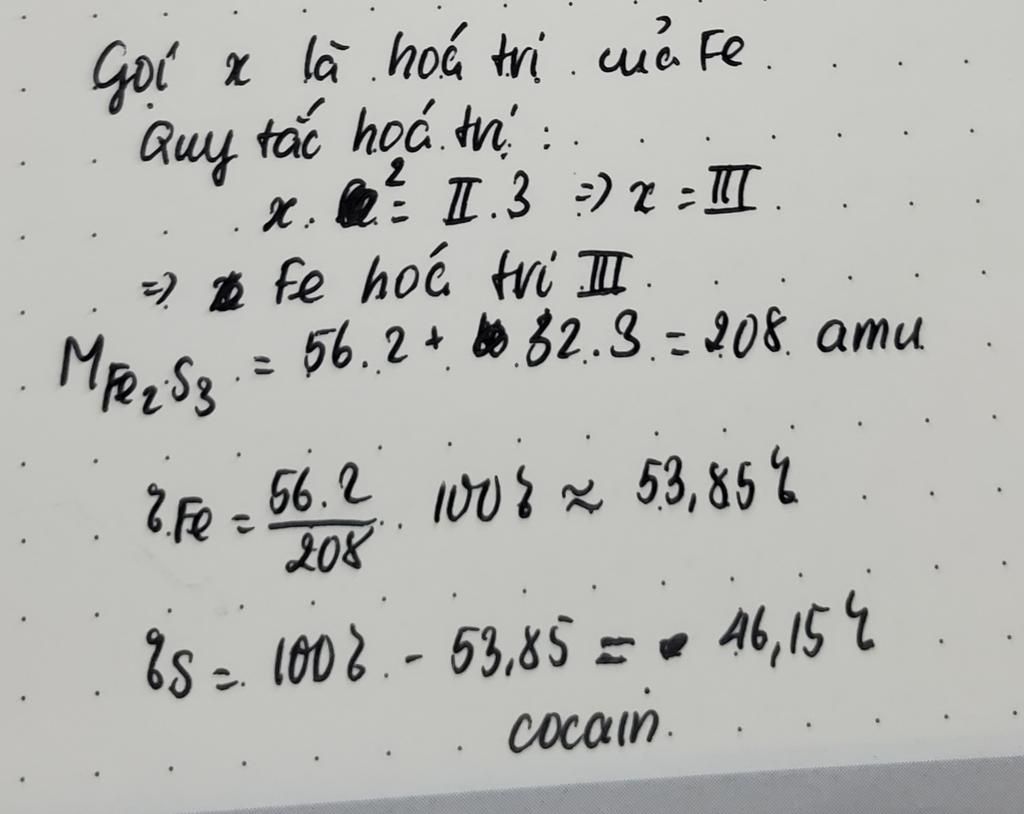 Gọi x là hoá trị của Fe
Quy tắc hoá trị:
x. 2 = II.3 => x = III
=> Fe hoá trị III
M Fe₂S₃ = 56.2 + 32.3 = 208 amu
% Fe = 56.2 / 208 . 100% ≈ 53,85%
% S = 100% - 53,85 = 46,15%
cocain